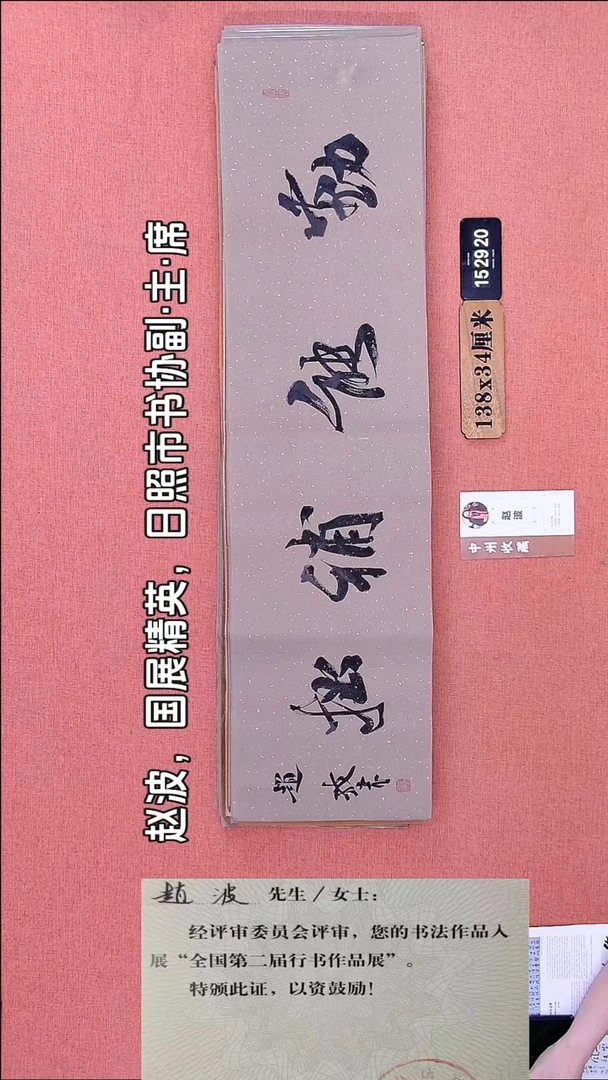 勤能補拙
趙波书
赵波，国展精英，日照市书协副·主·席
152920
138x34厘米
赵波
中州收藏
趙波 先生／女士：
经评审委员会评审，您的书法作品入
展“全国第二届行书作品展”。
特颁此证，以资鼓励！